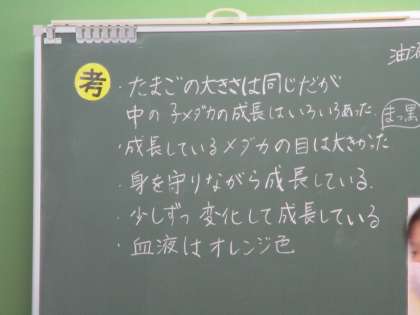 考
・たまごの大きさは同じだが
中の子メダカの成長はいろいろあった.
・成長しているメダカの目は大きかった
・身を守りながら成長している.
・少しずつ変化して成長している
・血液はオレンジ色
油
まっ黒